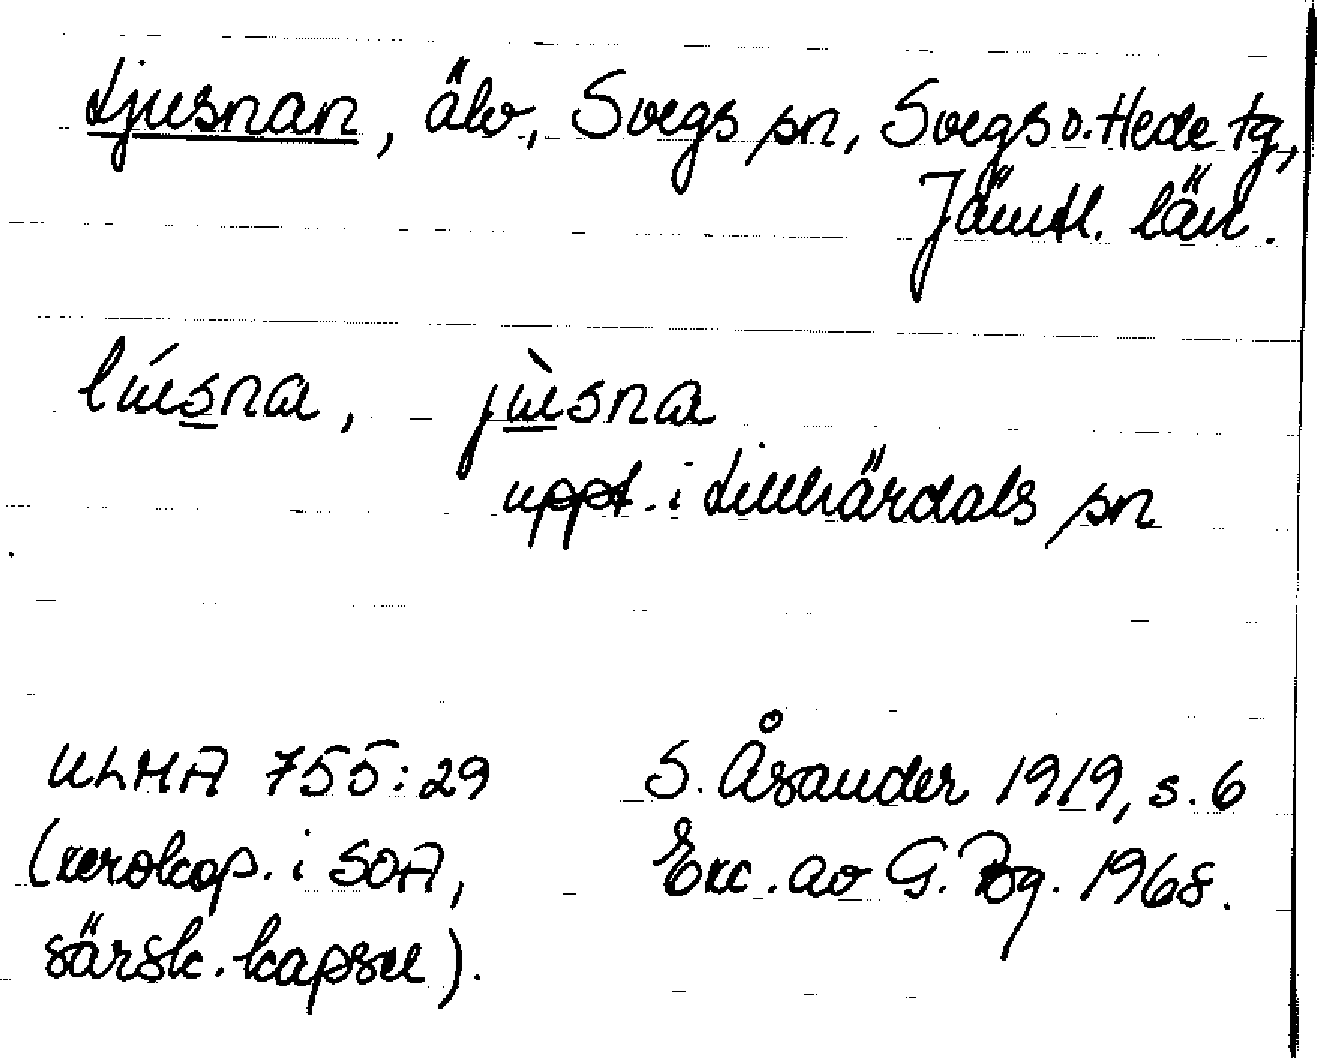 Ljusnan, älv, Svegs sn, Svegs o. Hede tg,
Jämtl. län.
lúsna, jùsna
uppt. i Lillhärdals sn
ULMA 755:29 S. Åsander 1919, s. 6
(xerokop. i SOA, Exc. av G. Bg. 1968.
särsk. kapsel).